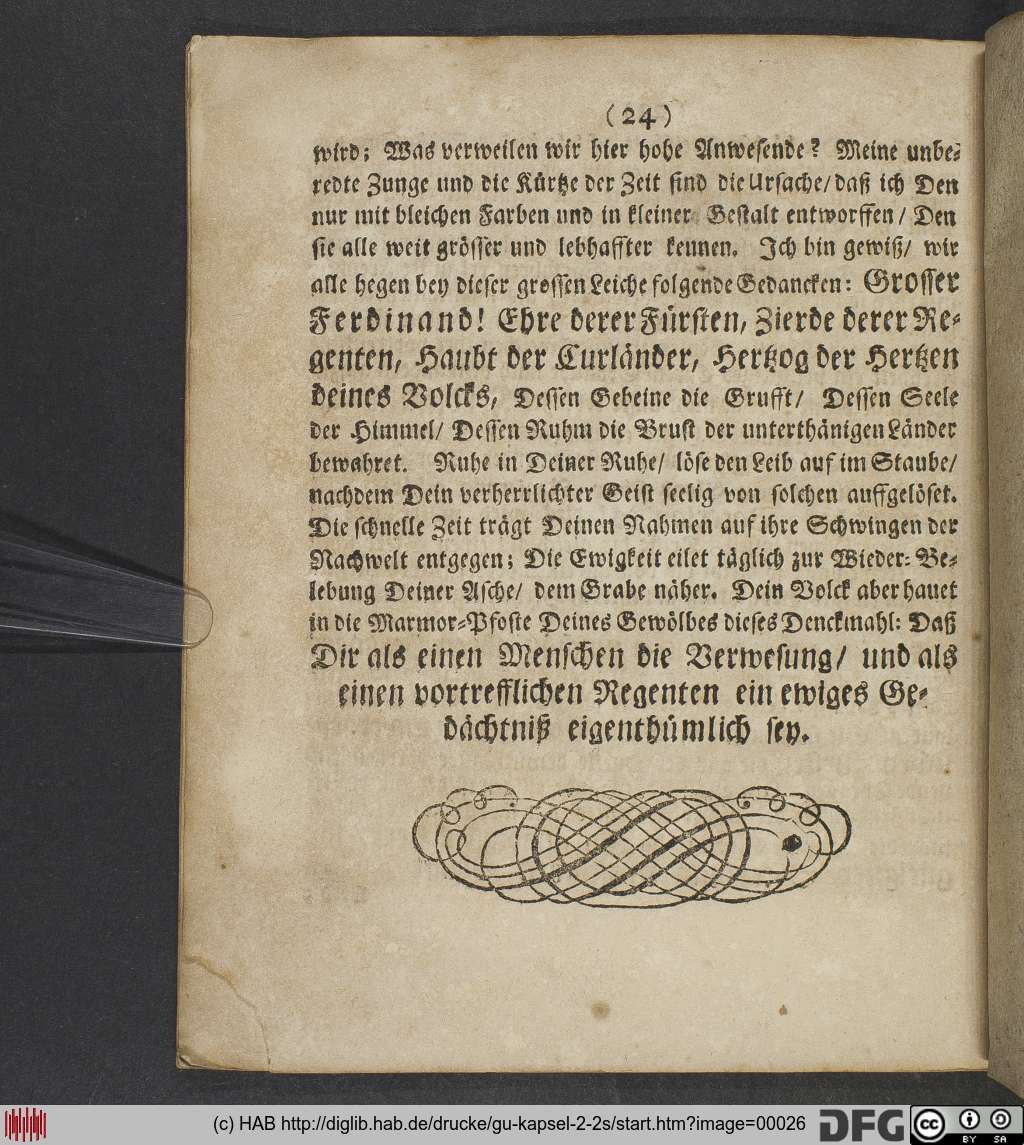 (24)
wird; Was verweilen wir hier hohe Anwesende? Meine unbe-
redte Zunge und die Kürtze der Zeit sind die Ursache/ daß ich Den
nur mit bleichen Farben und in kleiner Gestalt entworffen/ Den
sie alle weit grösser und lebhaffter kennen. Ich bin gewiß/ wir
alle hegen bey dieser grossen Leiche folgende Gedancken: Grosser
Ferdinand! Ehre derer Fürsten, Zierde derer Re-
genten, Haubt der Curländer, Hertzog der Hertzen
deines Volcks, Dessen Gebeine die Grufft/ Dessen Seele
der Himmel/ Dessen Ruhm die Brust der unterthänigen Länder
bewahret. Ruhe in Deiner Ruhe/ löse den Leib auf im Staube/
nachdem Dein verherrlichter Geist seelig von solchen auffgelöset.
Die schnelle Zeit trägt Deinen Nahmen auf ihre Schwingen der
Nachwelt entgegen; Die Ewigkeit eilet täglich zur Wieder-Be-
lebung Deiner Asche/ dem Grabe näher. Dein Volck aber hauet
in die Marmor-Pfoste Deines Gewölbes dieses Denckmahl: Daß
Dir als einen Menschen die Verwesung/ und als
einen vortrefflichen Regenten ein ewiges Ge-
dächtniß eigenthümlich sey.
(c) HAB http://diglib.hab.de/drucke/gu-kapsel-2-2s/start.htm?image=00026
DFG
cc
BY SA